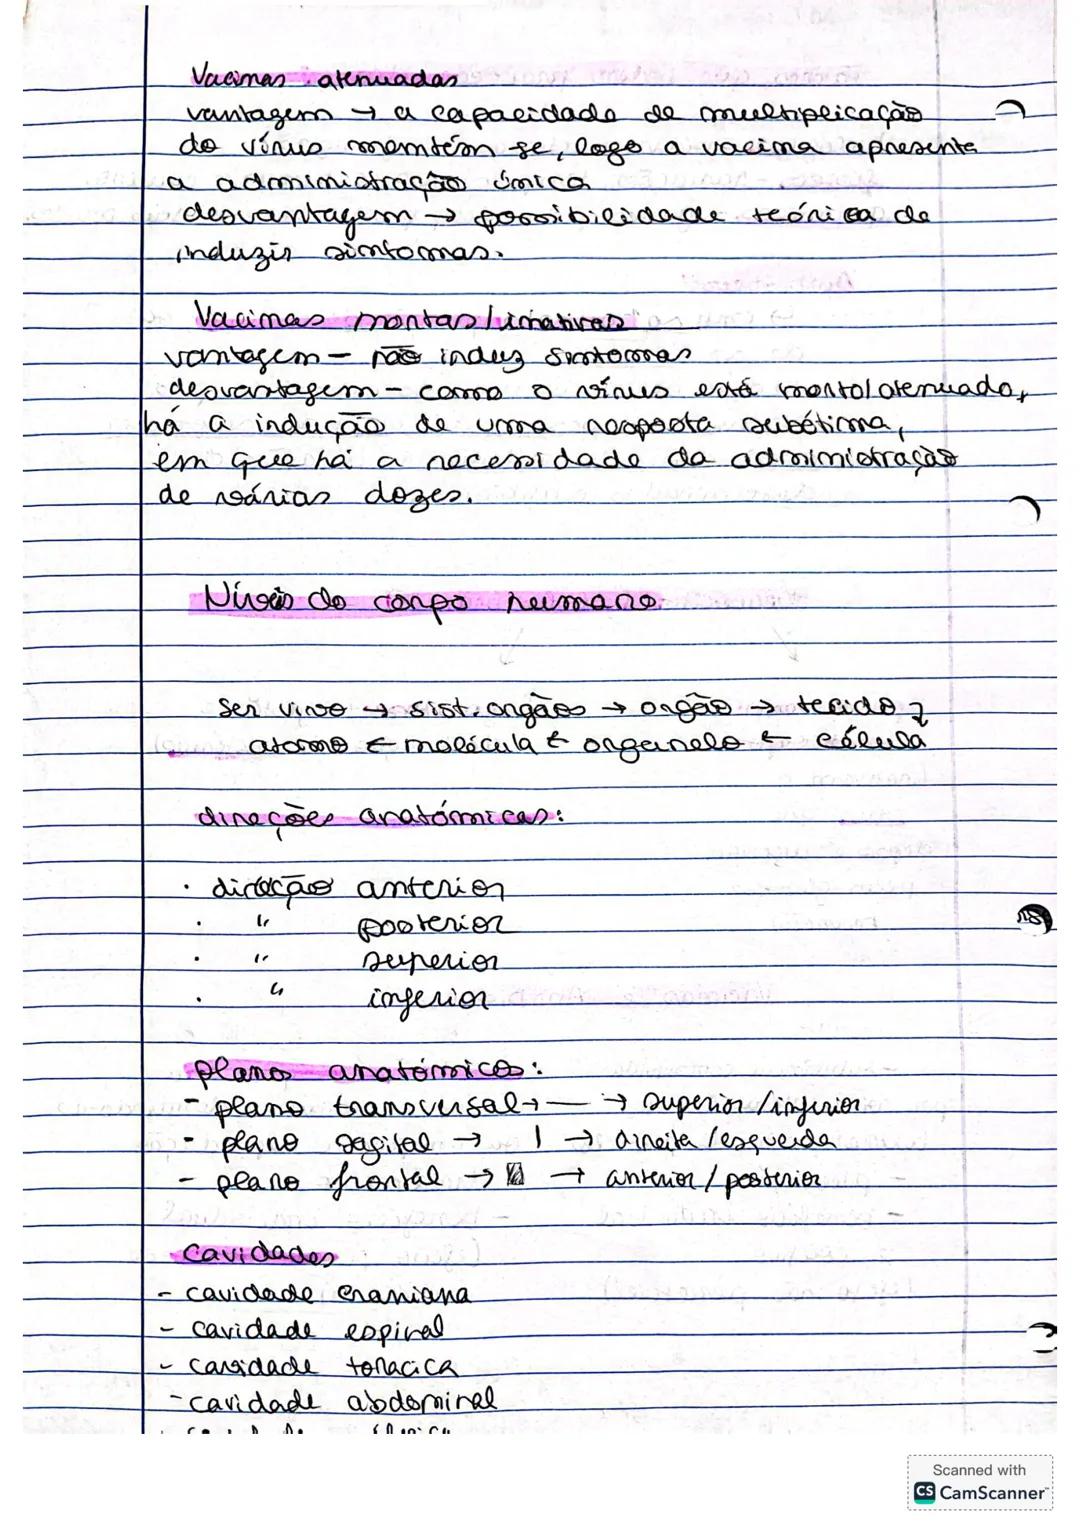 Vacinas atenuadas
vantagem → a capacidade de multiplicação
do vírus memtém-se, logo a vacina apresenta
a administração única
desvantagem → possibilidade teórica de
induzir sintomas.
Vacinas mortas/inativas
vantagem - não induz sintomas
desvantagem - como o vírus está morto/atenuado,
há a indução de uma resposta subótima,
em que há a necessidade da administração
de várias dozes.
Níveis do corpo humano
Ser vivo → sist. orgãos → orgão → tecido
atomo ← molécula ← organelo ← célula
direções anatómicas:
· direção anterior
· " posterior
· " superior
· " inferior
planos anatómicos:
- plano transversal → — → superior/inferior
- plano sagital → | → direita/esquerda
- plano frontal → → anterior/posterior
cavidades
- cavidade craniana
- cavidade espinal
- cavidade toracica
- cavidade abdominal
Scanned with
CS CamScanner